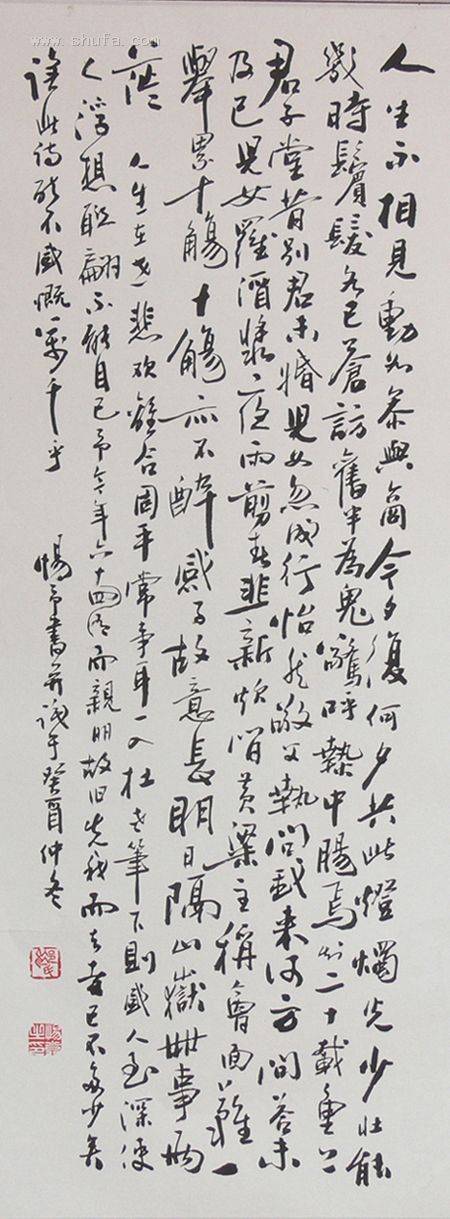 www.shufa.com
人生不相見動如參與商今夕復何夕共此燈燭光少壯能
幾時鬢髮各已蒼訪舊半為鬼驚呼熱中腸焉知二十載重上
君子堂昔別君未婚兒女忽成行怡然敬父執問我來何方問答未
及已兒女羅酒漿夜雨剪春韭新炊間黃粱主稱會面難一
舉累十觴十觴亦不醉感子故意長明日隔山嶽世事兩
茫茫 人生在世悲欢離合固平常事耳一入杜老筆下則感人至深使
人浮想联翩不能自已予今年六十四而親朋故旧先我而去者已不為少矣
誦此詩能不感慨萬千乎
予書並識于癸酉仲冬